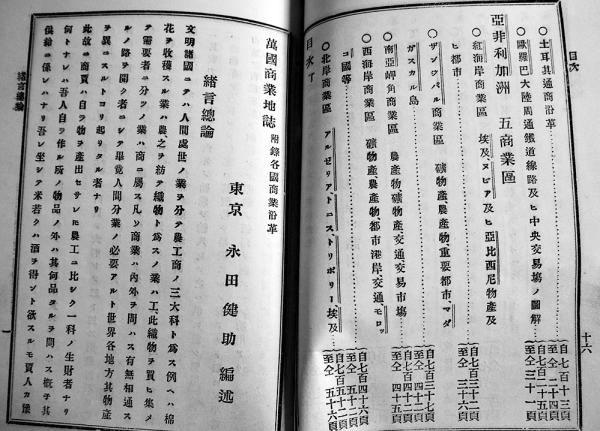 目次
十六
○土耳其通商沿革
自七百十三頁
至仝 二十四頁
○歐羅巴大陸周通鐵道線路及ヒ中央交易場ノ圖解
自七百二十五頁
至仝 三十一頁
亞非利加洲 五商業區
○紅海岸商業區 埃及、ヌビア及ヒ亞比西尼物產及
ヒ都市
自七百三十二頁
至仝 三十六頁
○ザンヴバル商業區 礦物產農產物、重要都市、マダ
ガスカル島
自七百三十七頁
至仝 四十一頁
○南亞岬角商業區 農產物、礦物產交通交易市塲
自七百四十二頁
至仝 四十五頁
○西海岸商業區 礦物產農產物、都市港岸、交通、モロッ
コ國等
自七百四十六頁
至仝 五十一頁
○北岸商業區 アルゼリア、トニス、トリポリー、埃及
自七百五十二頁
至仝 五十六頁
目次了
萬國商業地誌 附錄各國商業沿革
東京 永田健助 編述
緒言總論
文明諸國ニテハ人間處世ノ業ヲ分テ農工商ノ三大科ト爲ス例ヘハ棉
花ヲ收穫スル業ハ農、之ヲ紡テ織物ト爲スノ業ハ工、此織物ヲ買ヒ集メ
テ需要者ニ分ツノ業ハ商ニ屬ス凡ソ商業ハ內外ヲ問ハス有無相通ス
ルノ路ヲ開ク者ニシテ畢竟人間分業ノ必要アルト世界各地方其物產
ヲ異ニスルトヨリ起リタル者ナリ
此故ニ商賈ハ自ラ物ヲ產出セサレモ農工ニ比シク一科ノ生財者ナリ
何トナレハ吾人自ラ作ル所ノ物品ノ外ハ其何品タルヲ問ハス槪子其
供給ニ係レハナリ吾レ坐シテ米若クハ酒ヲ得ント欲スルモ賈人カ
緒言總論
一